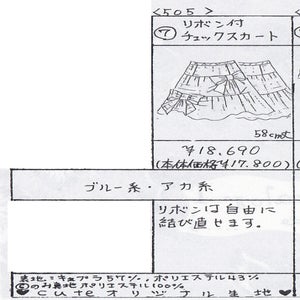 <505>
⑦ リボン付
チェックスカート
58cm丈
¥18,690
(本体価格¥17,800)
ブルー系・アカ系
リボンは自由に
結び直せます。
表地=キュプラ57%,ポリエステル43%
のみ裏地ポリエステル100%
♥cuteオリジナル生地♥